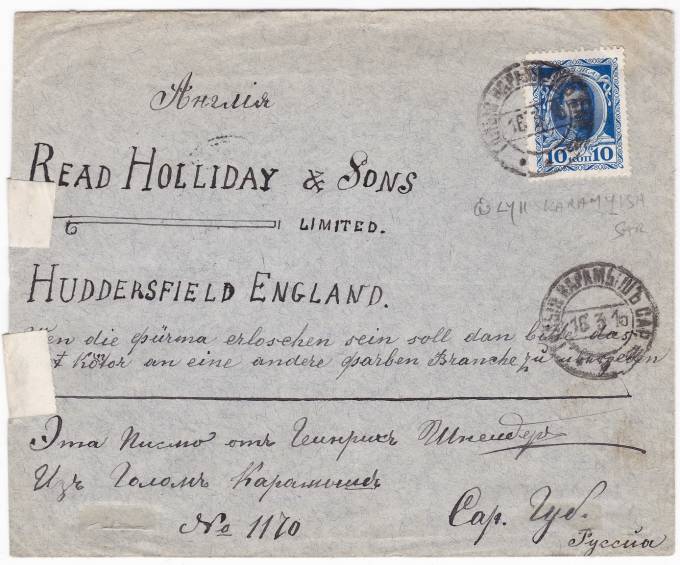 Англія
READ HOLLIDAY & SONS
LIMITED.
HUDDERSFIELD ENGLAND.
Wen die Fürma erloschen sein soll dan bitte das
an eine andere Farben Branche zu übergeben
Эта Писмо отъ Генрихъ Шнейдеръ
Изъ Голомъ Карамышъ
№ 1170
Сар. Губ.
Руссиа
10 КОП 10
КАРАМЫШЪ САР.
16 3
KARAMYISH